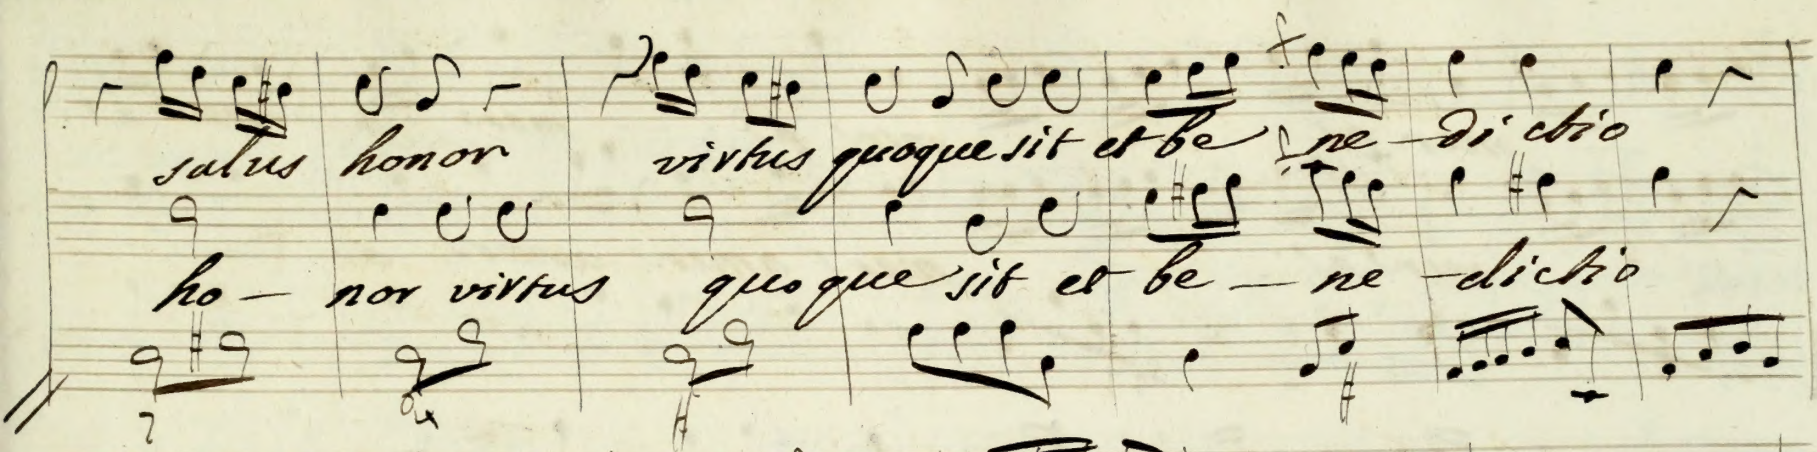 salus honor virtus quoque sit et be ne - di ctio
ho - nor virtus quoque sit et be - ne - dictio
7 6 4